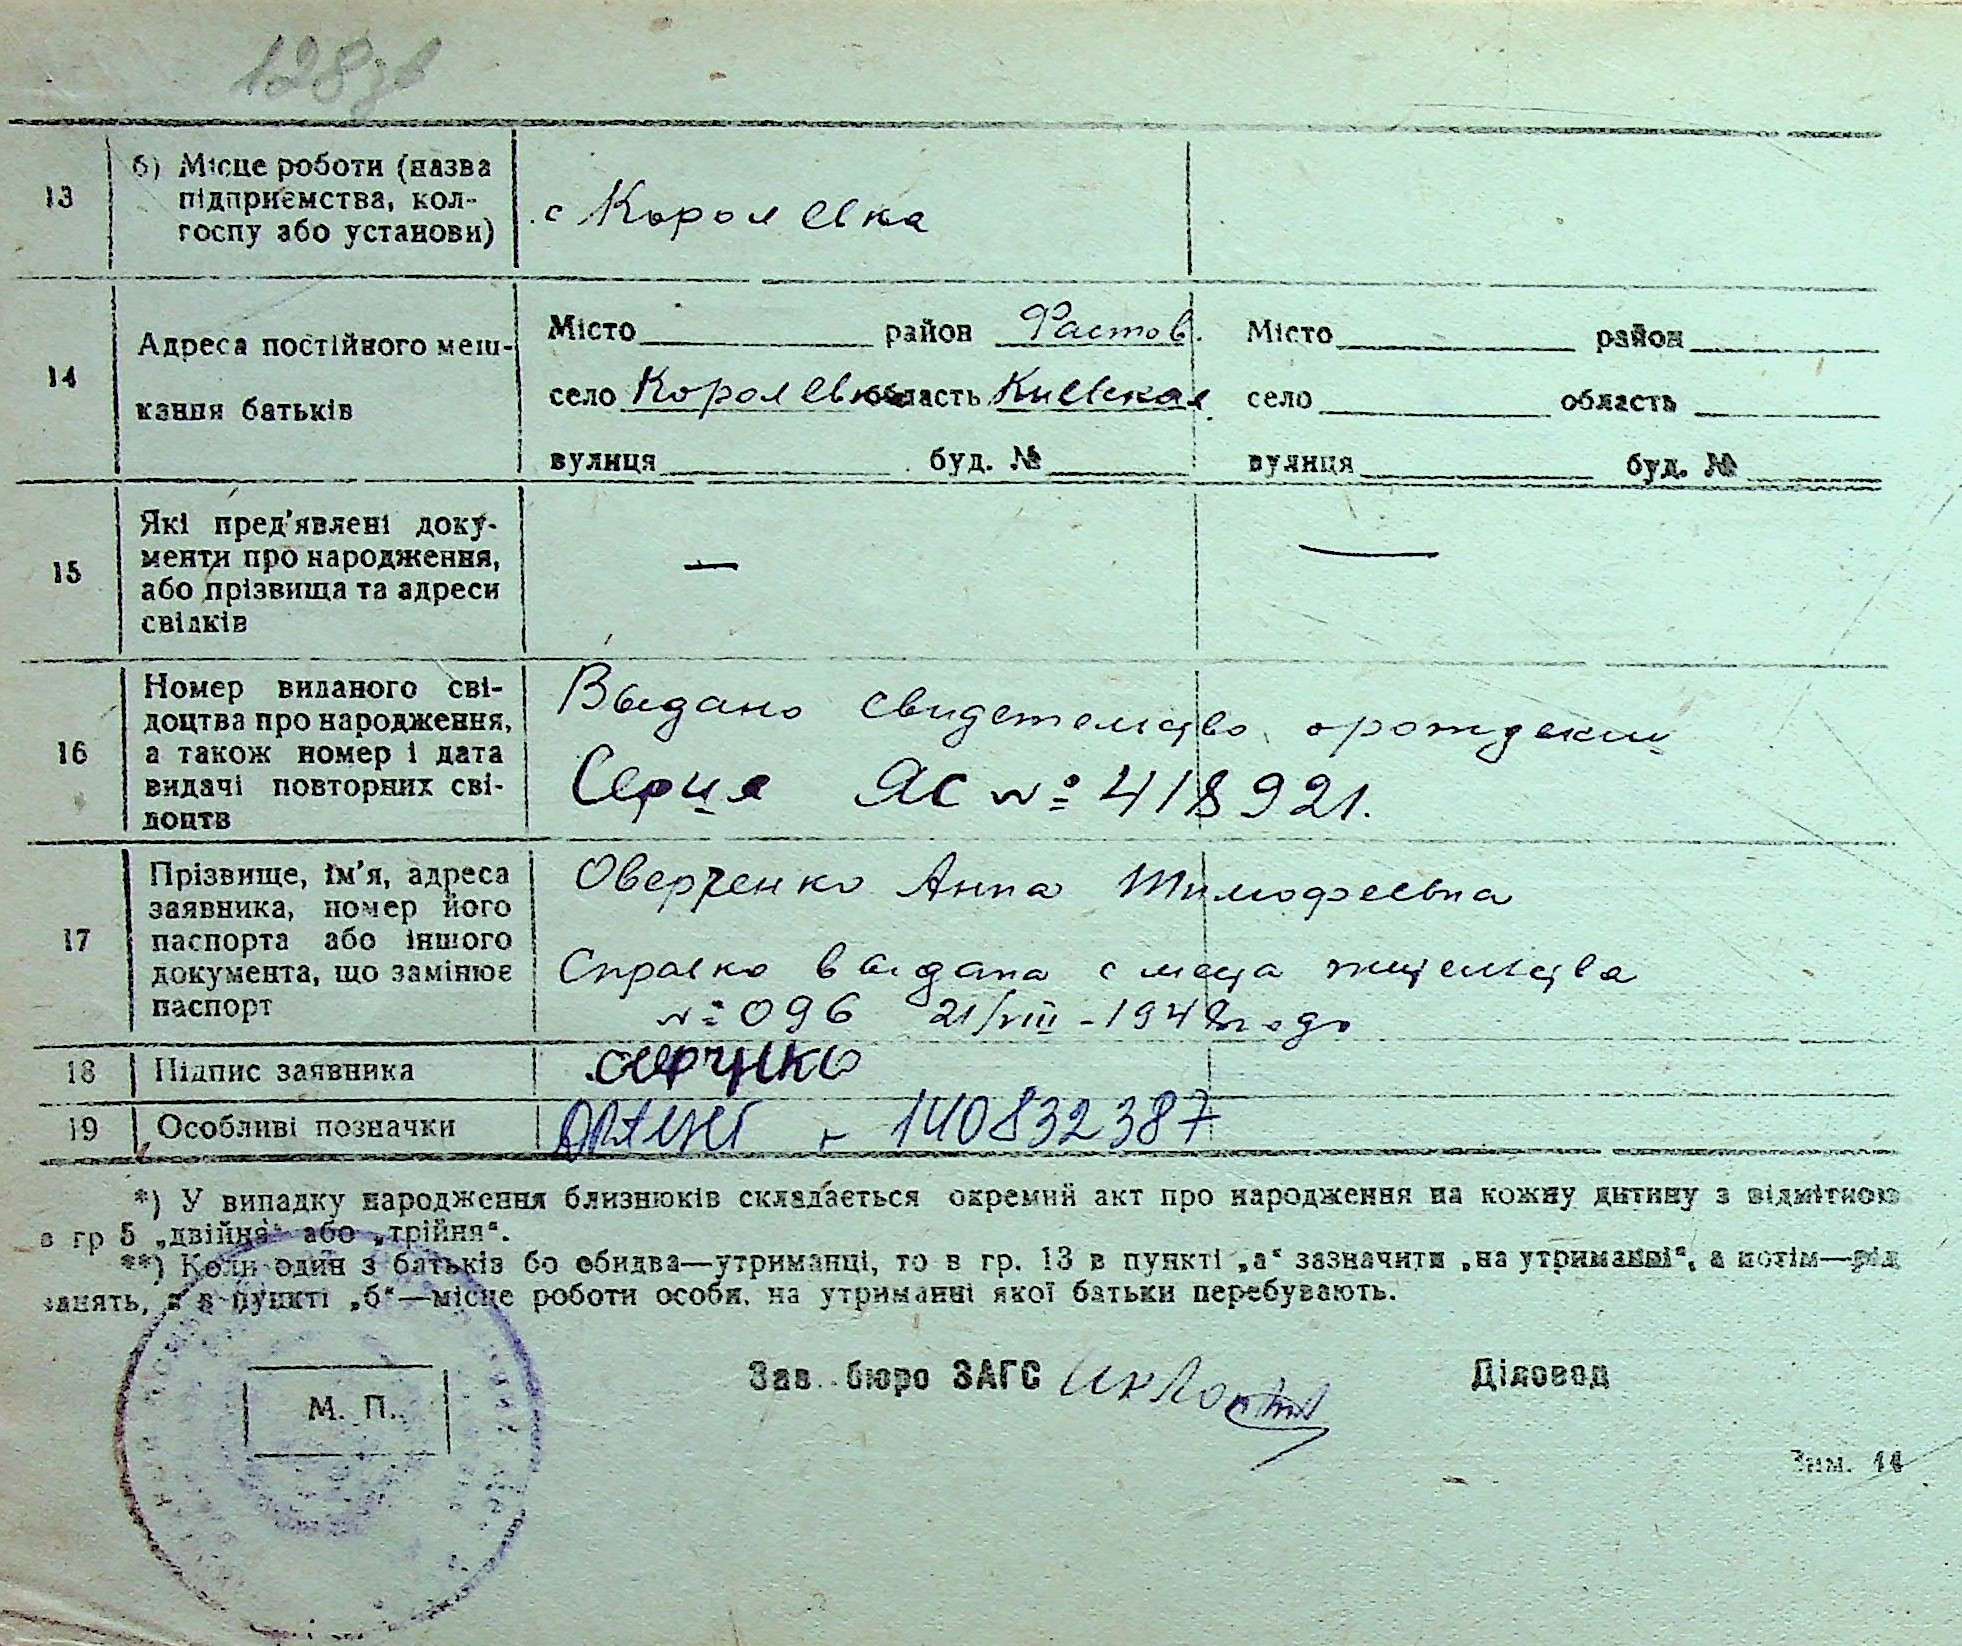 128зв
13 б) Місце роботи (назва
підприємства, кол-
госпу або установи)
с Королевка
14 Адреса постійного меш-
кання батьків
Місто район Фастов.
село Королевка область Киевская
вулиця буд. №
Місто район
село область
вулиця буд. №
15 Які пред'явлені доку-
менти про народження,
або прізвища та адреси
свідків
— —
16 Номер виданого сві-
доцтва про народження,
а також номер і дата
видачі повторних сві-
доцтв
Выдано свидетельство о рождении
Серия ЯС № 418921.
17 Прізвище, ім'я, адреса
заявника, номер його
паспорта або іншого
документа, що замінює
паспорт
Оверченко Анна Тимофеевна
Справка выдана с места жительства
№ 096 21/VIII - 1948 года
18 Підпис заявника
19 Особливі позначки 140832387
*) У випадку народження близнюків складається окремий акт про народження на кожну дитину з відміткою
в гр 5 „двійня“ або „трійня“.
**) Коли один з батьків бо обидва—утриманці, то в гр. 13 в пункті „а“ зазначити „на утриманні“, а потім—рід
занять, а в пункті „б“—місце роботи особи, на утриманні якої батьки перебувають.
М. П.
Зав. бюро ЗАГС Діловод
Зим. 44